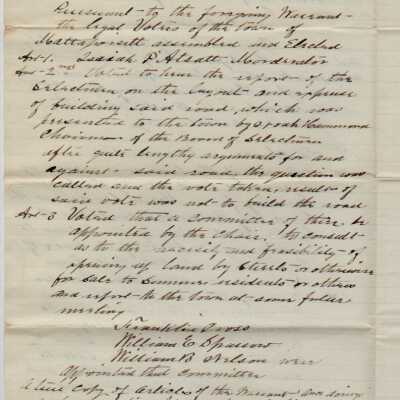 Pursuant to the foregoing Warrant
the legal Voters of the town of
Mattapoisett assembled and Elected
Art 1. Isaiah P Atsatt Moderator
Art 2nd Voted to hear the report of the
Selectmen on the layout and expense
of building said road, which was
presented to the town by Noah Hammond
Chairman of the Board of Selectmen
after quite lengthy arguments for and
against said road the question was
called and the vote taken, result of
said vote was not to build the road
Art 3 Voted that a committee of three be
appointed by the Chair, to consult
as to the and feasibility of
opening up land by Streets or otherwise
for Sale to Summer residents or others
and report to the town at some future
meeting
Franklin Cross
William E Sparrow
William B Nelson were
Appointed that Committee
A true Copy of Articles of the Warrant and doings